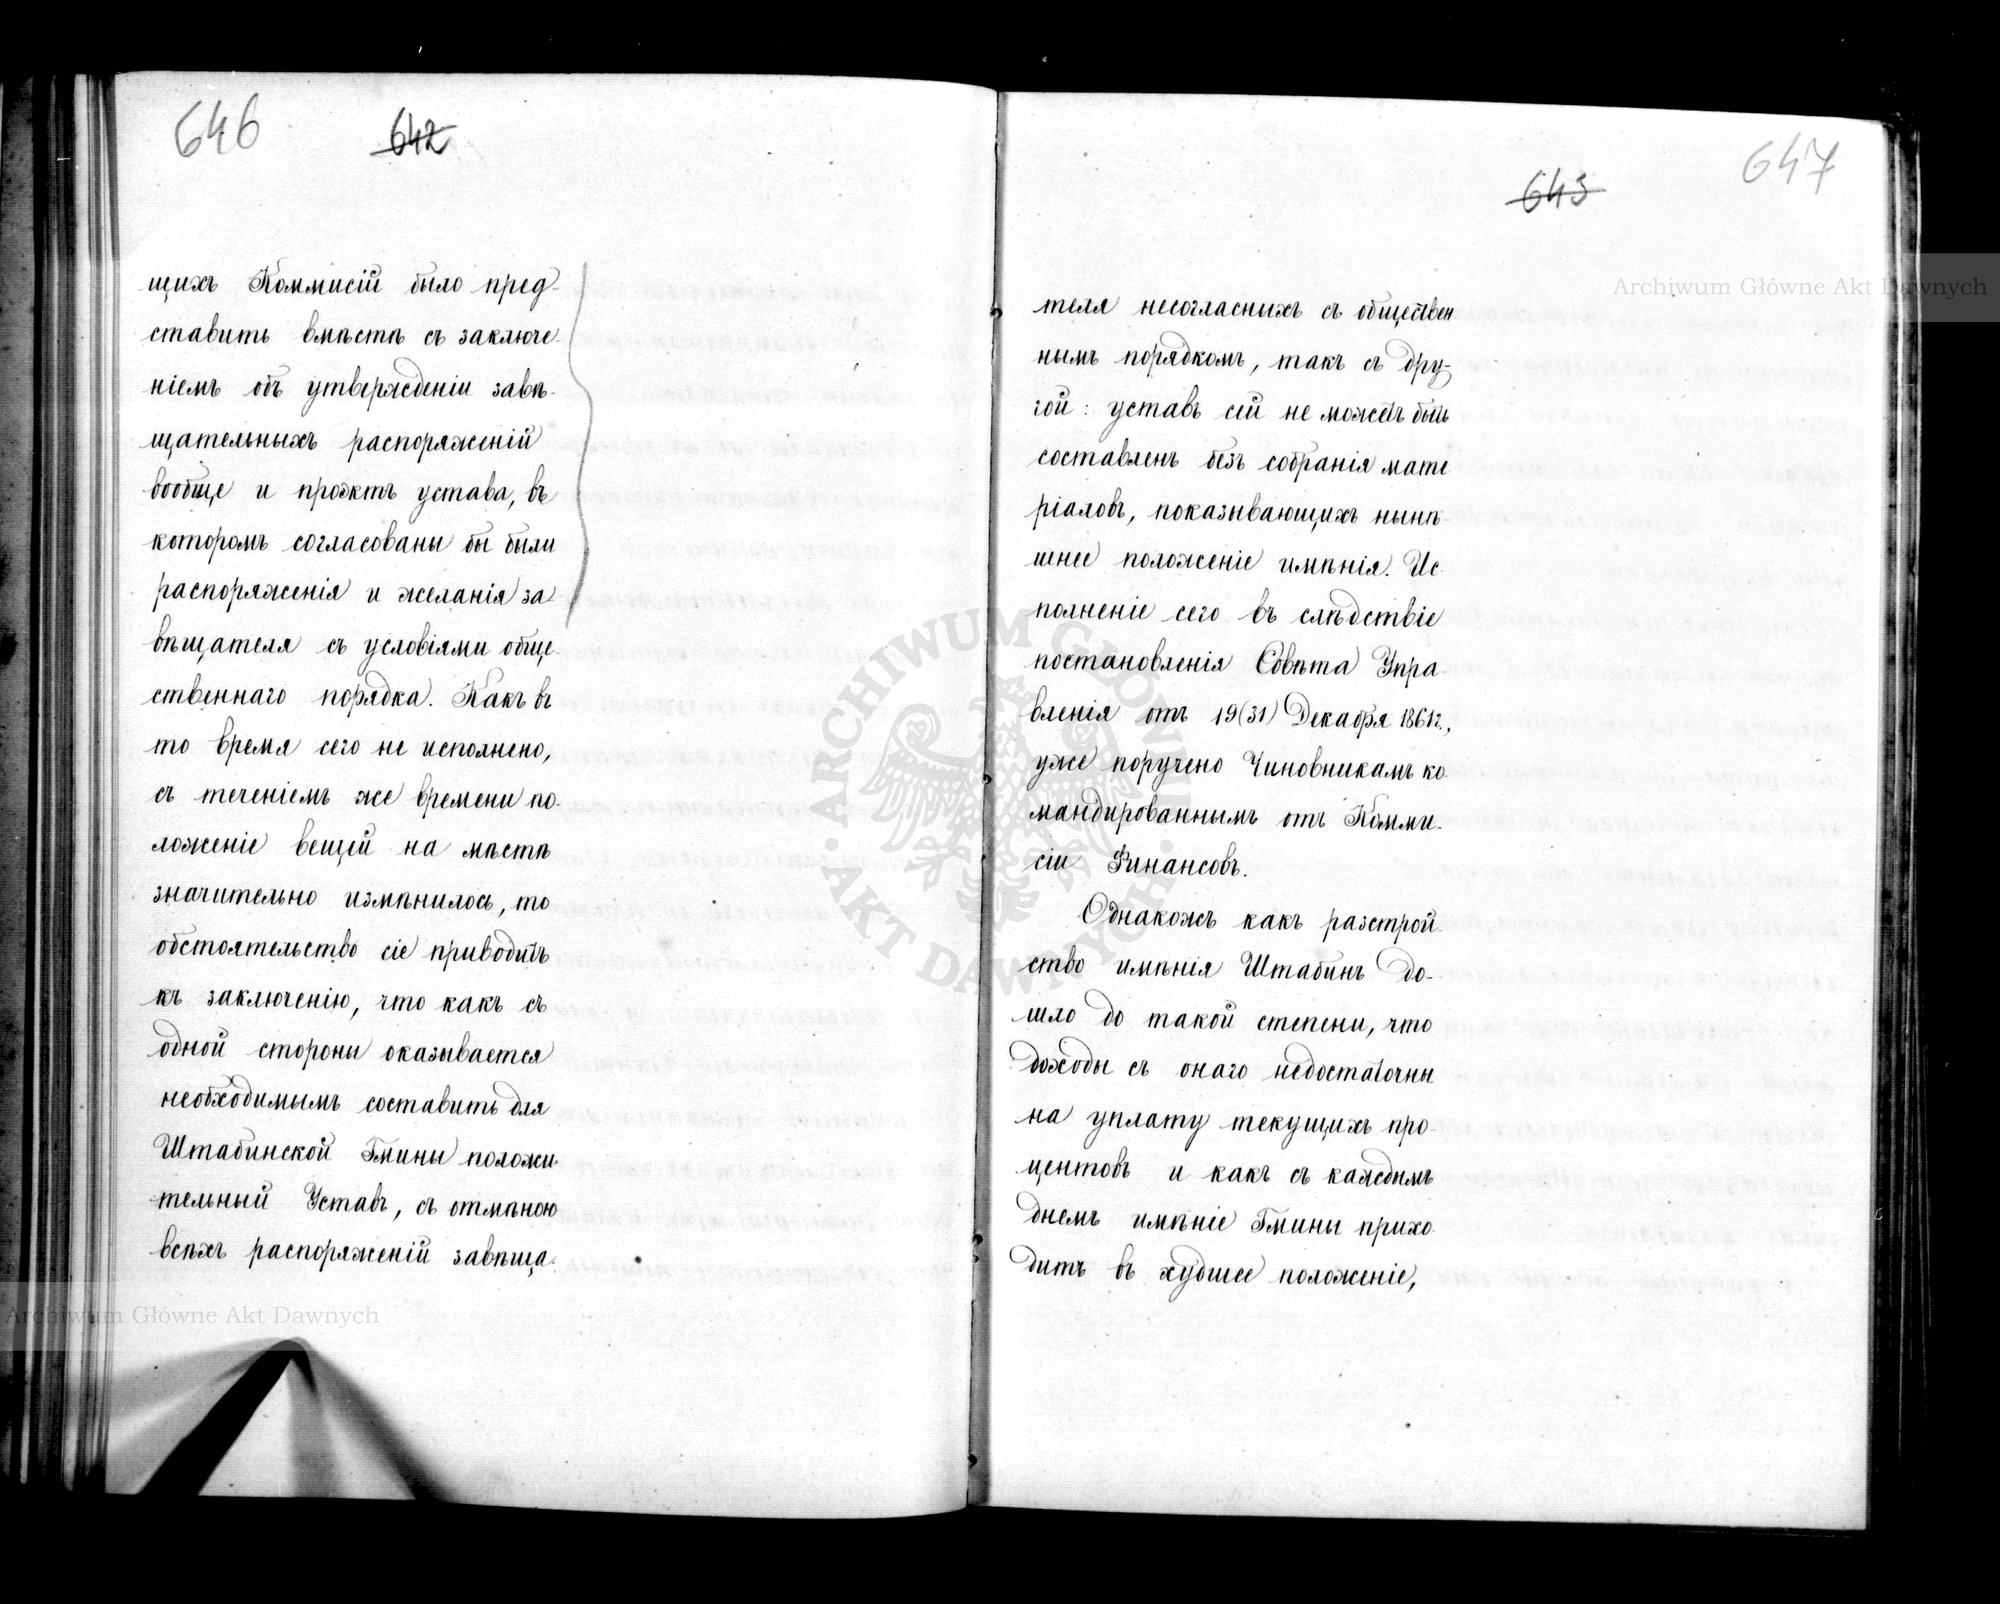 646
642
щихъ Коммисій было пред-
ставить вмѣстѣ съ заключе-
ніемъ объ утвержденіи завѣ-
щательныхъ распоряженій
вообще и проэктъ устава, въ
которомъ согласованы бы были
распоряженія и желанія за-
вѣщателя съ условіями обще-
ственнаго порядка. Какъ въ
то время сего не исполнено,
съ теченіемъ же времени по-
ложеніе вещей на мѣстѣ
значительно измѣнилось, то
обстоятельство сіе приводитъ
къ заключенію, что какъ съ
одной стороны оказывается
необходимымъ составить для
Штабинской Гмины положи-
тельный Уставъ, съ отмѣною
всѣхъ распоряженій завѣща-
647
643
теля несогласныхъ съ обществен
нымъ порядкомъ, такъ съ дру-
гой: уставъ сей не можетъ быть
составленъ безъ собранія мате
ріаловъ, показывающихъ нынѣ-
шнее положеніе имѣнія. Ис-
полненіе сего въ слѣдствіе
постановленія Совѣта Упра-
вленія отъ 19(31) Декабря 1861г.,
уже поручено Чиновникамъ ко-
мандированнымъ отъ Комми-
сіи Финансовъ.
Однакожъ какъ разстрой-
ство имѣнія Штабинъ до-
шло до такой степени, что
доходы съ онаго недостаточны
на уплату текущихъ про-
центовъ и какъ съ каждымъ
днемъ имѣніе Гмины прихо-
дитъ въ худшее положеніе,
Archiwum Główne Akt Dawnych
Archiwum Główne Akt Dawnych
ARCHIWUM GŁÓWNE AKT DAWNYCH